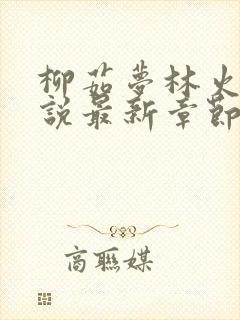 柳茹夢林火
說最新章節
商聯媒